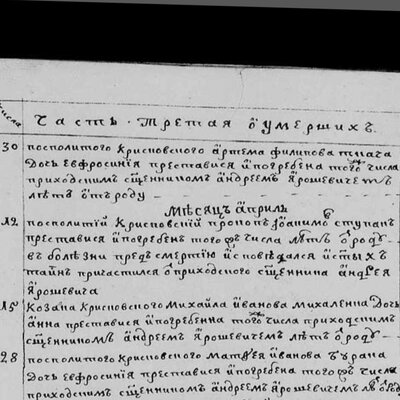 числа
Часть третая о умершихъ
30 посполитого крисковского артема филипова ткача
дочь евфросиния преставися и погребена того числа
приходскимъ сщенникомъ андреемъ ярошевичемъ
лѣтъ отъ роду
Мѣсяцъ априль
12 посполитій крисковскій прокопъ ступак
преставися и погребенъ того числа лѣтъ роду
в болезни предъ смертию исповѣдался и стыхъ
таинъ причастился приходского сщенника андрея
ярошевича
15 козака крисковского михайла иванова михаленка дочь
анна преставися и погребенна того числа приходскимъ
сщенникомъ андреемъ ярошевичемъ лѣтъ роду
28 посполитого крисковского матвея иванова бурана
дочь евфросиния преставися и погребена того числа
приходскимъ сщенникомъ андреемъ ярошевичемъ